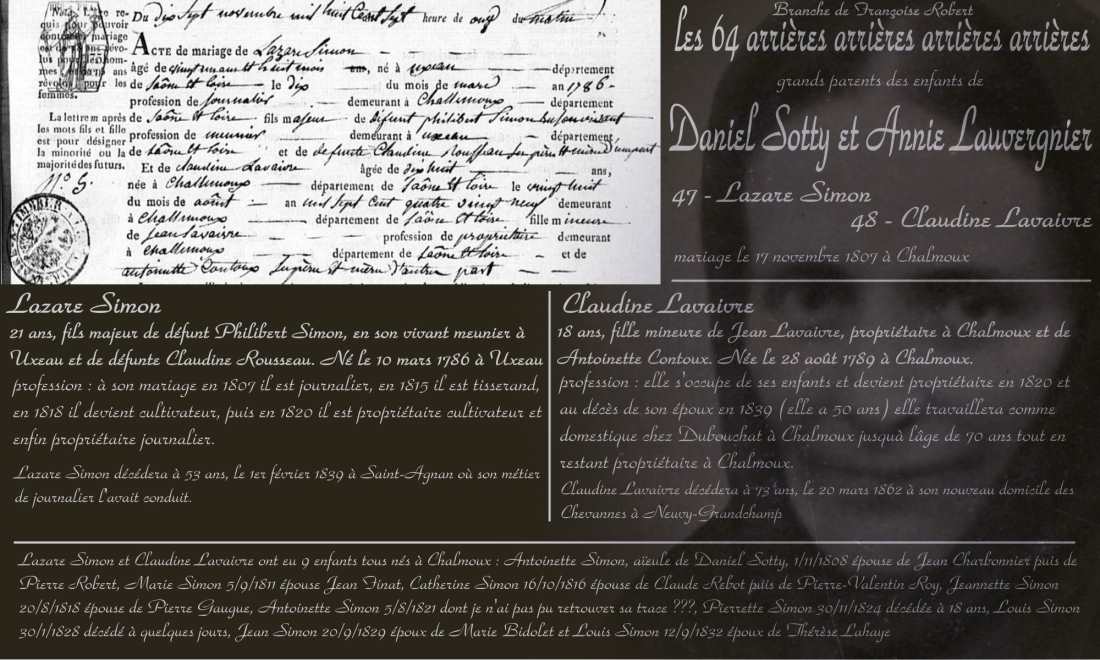 Du dix sept novembre mil huit cent sept heure de onze du matin
ACTE de mariage de Lazare Simon
âgé de vingt un ans et huit mois ans, né à uxeau département
de Saône et loire le dix du mois de mars an 1786
profession de journalier demeurant à Challemoux département
de Saône et loire fils majeur de défunt philibert Simon en son vivant
profession de meunier demeurant à uxeau département
de Saône et loire et de defunte Claudine Rousseau ses père et mère d'une part
Et de claudine Lavaivre âgée de dix huit ans,
née à Challemoux département de Saône et loire le vingt huit
du mois de août an mil sept Cent quatre vingt neuf demeurant
à Challemoux département de Saône et loire fille mineure
de jean Lavaivre profession de propriétaire demeurant
à challemoux département de Saône et loire et de
antoinette Contoux ses père et mère d'autre part
La lettre m après
les mots fils et fille
est pour désigner
la minorité ou la
majorité des futurs.
N.° 5.
Branche de Françoise Robert
les 64 arrières arrières arrières arrières
grands parents des enfants de
Daniel Sotty et Annie Lauvergnier
47 - Lazare Simon
48 - Claudine Lavaivre
mariage le 17 novembre 1807 à Chalmoux
Lazare Simon
21 ans, fils majeur de défunt Philibert Simon, en son vivant meunier à
Uxeau et de défunte Claudine Rousseau. Né le 10 mars 1786 à Uxeau
profession : à son mariage en 1807 il est journalier, en 1815 il est tisserand,
en 1818 il devient cultivateur, puis en 1820 il est propriétaire cultivateur et
enfin propriétaire journalier.
Lazare Simon décédera à 53 ans, le 1er février 1839 à Saint-Agnan où son métier
de journalier l'avait conduit.
Claudine Lavaivre
18 ans, fille mineure de Jean Lavaivre, propriétaire à Chalmoux et de
Antoinette Contoux. Née le 28 août 1789 à Chalmoux.
profession : elle s'occupe de ses enfants et devient propriétaire en 1820 et
au décès de son époux en 1839 (elle a 50 ans) elle travaillera comme
domestique chez Dubouchat à Chalmoux jusquà lâge de 70 ans tout en
restant propriétaire à Chalmoux.
Claudine Lavaivre décédera à 73 ans, le 20 mars 1862 à son nouveau domicile des
Chevannes à Neuvy-Grandchamp
Lazare Simon et Claudine Lavaivre ont eu 9 enfants tous nés à Chalmoux : Antoinette Simon, aïeule de Daniel Sotty, 1/11/1808 épouse de Jean Charbonnier puis de
Pierre Robert, Marie Simon 5/9/1811 épouse Jean Finat, Catherine Simon 16/10/1816 épouse de Claude Rebot puis de Pierre-Valentin Roy, Jeannette Simon
20/8/1818 épouse de Pierre Gaugue, Antoinette Simon 5/8/1821 dont je n'ai pas pu retrouver sa trace ???, Pierrette Simon 30/11/1824 décédée à 18 ans, Louis Simon
30/1/1828 décédé à quelques jours, Jean Simon 20/9/1829 époux de Marie Bidolet et Louis Simon 12/9/1832 époux de Thérèse Lahaye